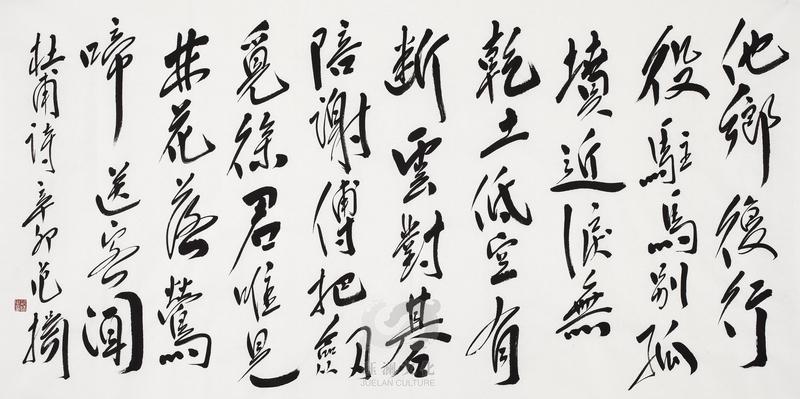 他鄉復行
役駐馬別孤
墳近淚無
乾土低空有
斷雲對碁
陪謝傅把劍
覓徐君唯見
林花落鶯
啼送客聞
杜甫詩辛卯范
JUELAN CULTURE